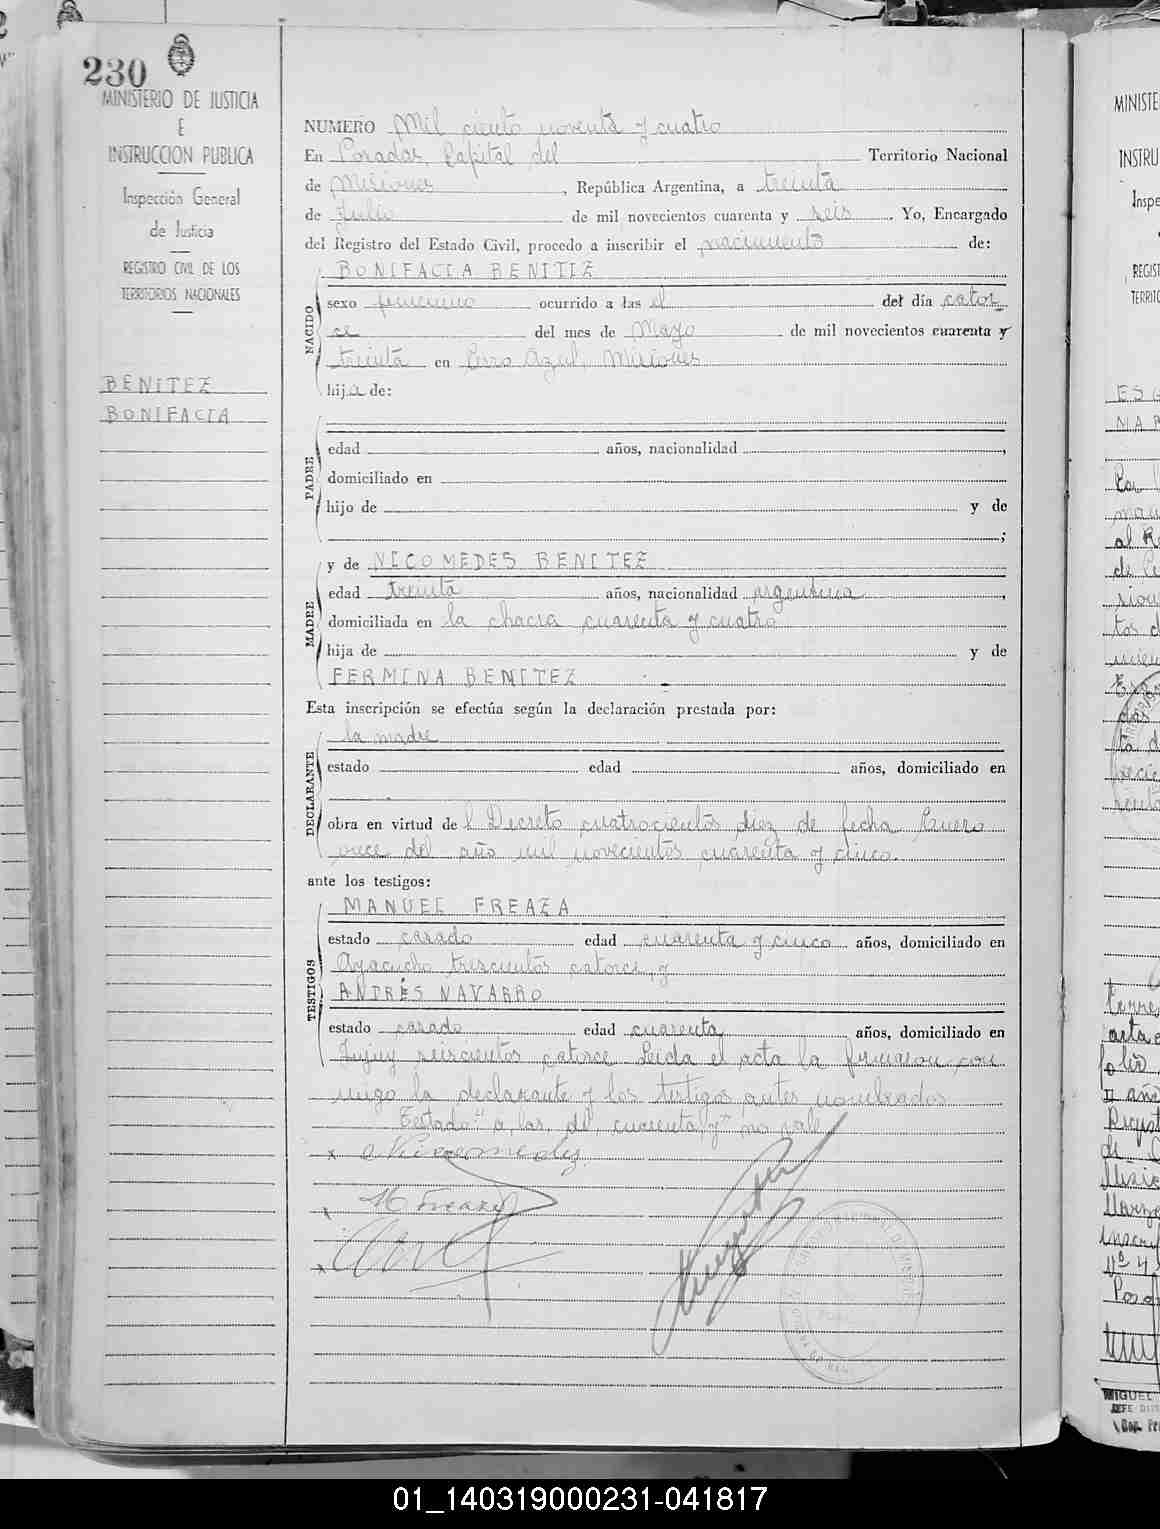 230
MINISTERIO DE JUSTICIA
E
INSTRUCCION PUBLICA
Inspección General
de Justicia
REGISTRO CIVIL DE LOS
TERRITORIOS NACIONALES
BENITEZ
BONIFACIA
NUMERO Mil ciento noventa y cuatro
En Posadas, Capital del Territorio Nacional
de Misiones, República Argentina, a treinta
de Julio de mil novecientos cuarenta y seis. Yo, Encargado
del Registro del Estado Civil, procedo a inscribir el nacimiento de:
NACIDO
BONIFACIA BENITIZ
sexo femenino ocurrido a las el del día cator
ce del mes de Mayo de mil novecientos cuarenta y
treinta en Cerro Azul, Misiones
hija de:
PADRE
edad años, nacionalidad ,
domiciliado en
hijo de y de
;
MADRE
y de NICOMEDES BENITEZ
edad treinta años, nacionalidad argentina,
domiciliada en la chacra cuarenta y cuatro
hija de y de
FERMINA BENITEZ
Esta inscripción se efectúa según la declaración prestada por:
DECLARANTE
la madre
estado edad años, domiciliado en
obra en virtud del Decreto cuatrocientos diez de fecha Enero
once del año mil novecientos cuarenta y cinco.
ante los testigos:
TESTIGOS
MANUEL FREAZA
estado casado edad cuarenta y cinco años, domiciliado en
Ayacucho trescientos catorce, y
ANDRÉS NAVARRO
estado casado edad cuarenta años, domiciliado en
Jujuy seiscientos catorce. Leida el acta la firmaron con
migo la declarante y los testigos antes nombrados
Testado: "a, las, del, cuarenta, y" no vale
x Nicomedes
M Freaza
MINISTE
INSTRU
Inspe
REGIST
TERRITO
MIGUEL
01_140319000231-041817